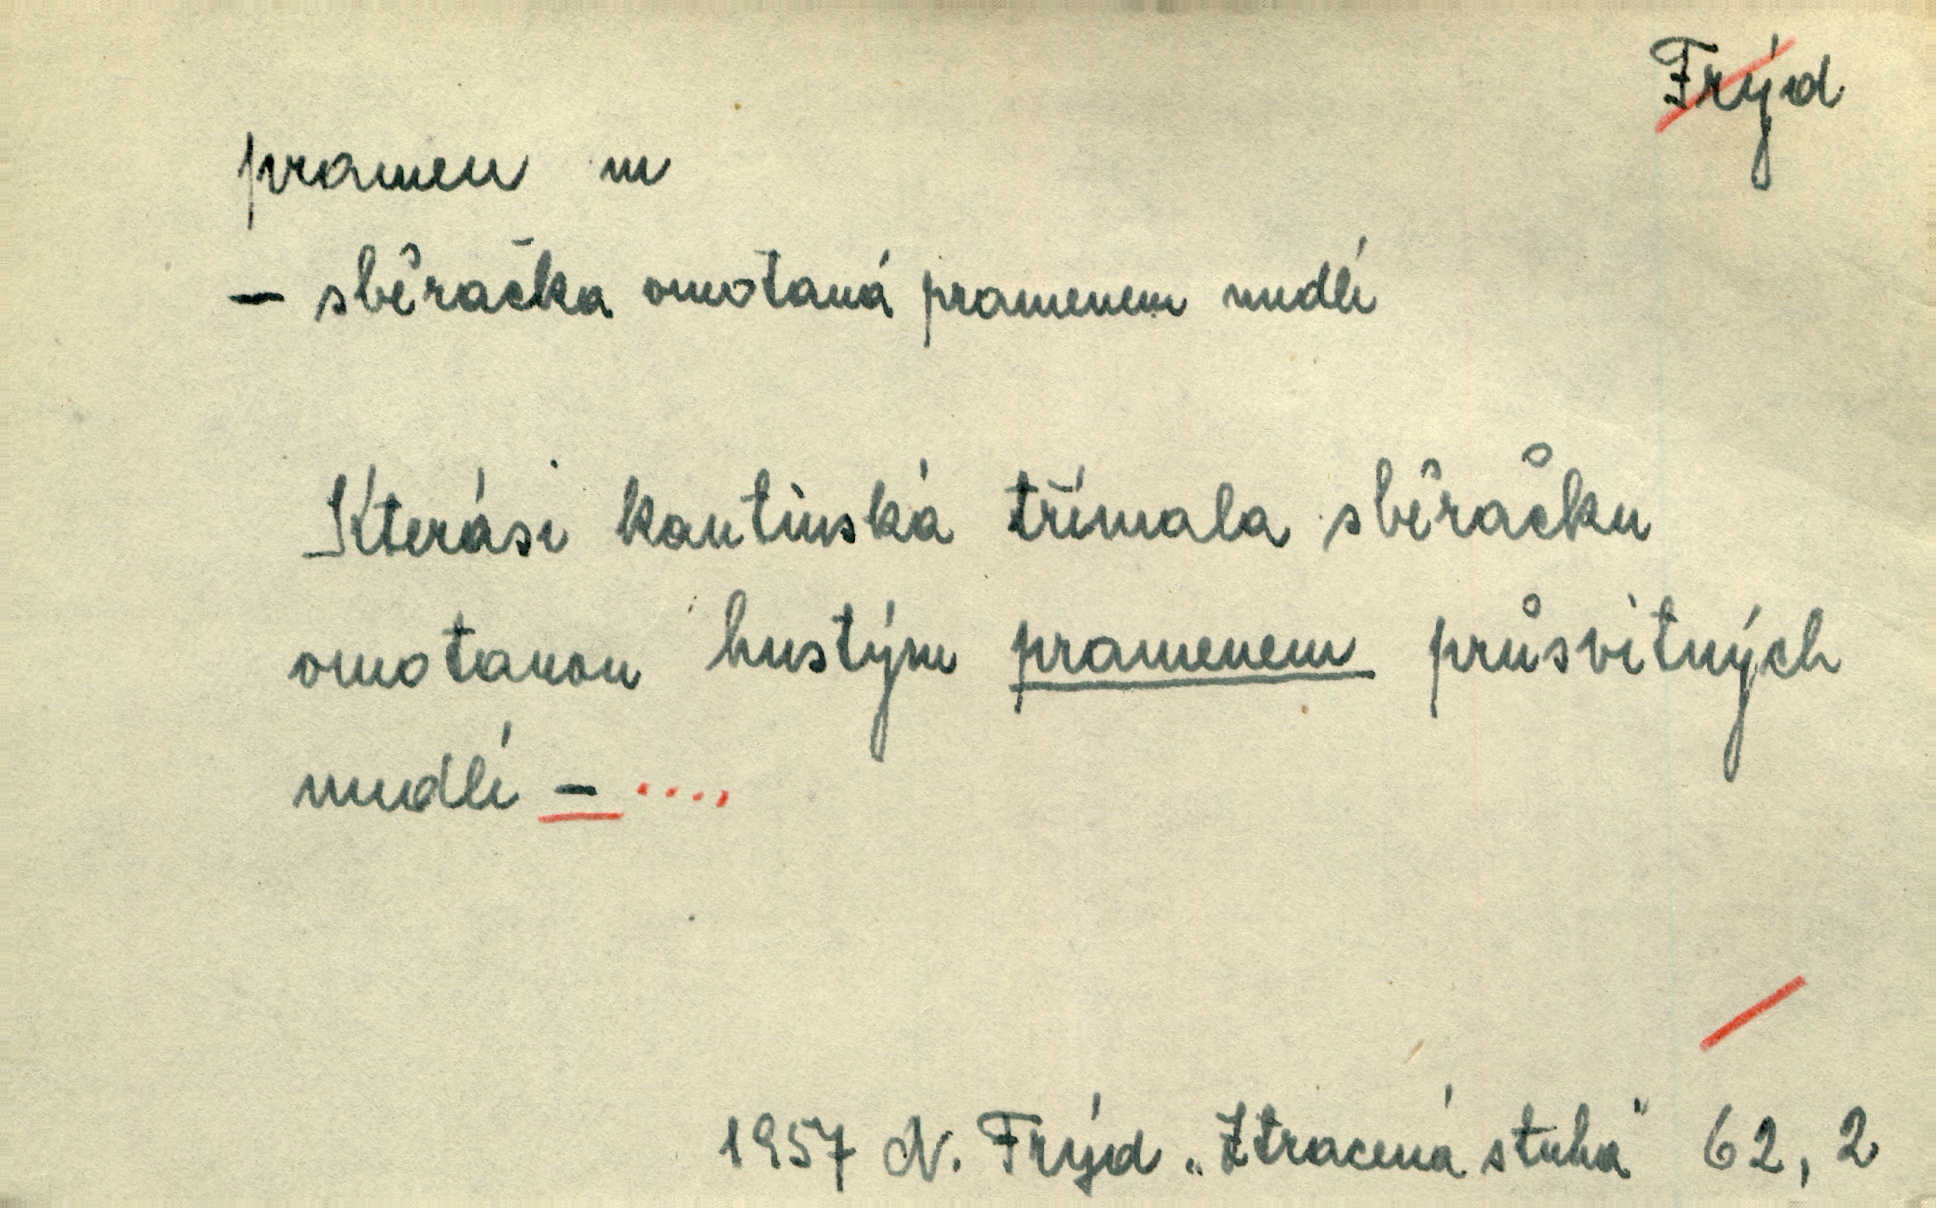 Frýd
pramen m
– sběračka omotaná pramenem nudlí
Kterási kantinská třímala sběračku
omotanou hustým pramenem průsvitných
nudlí – ....
1957 N. Frýd „Ztracená stuha" 62, 2